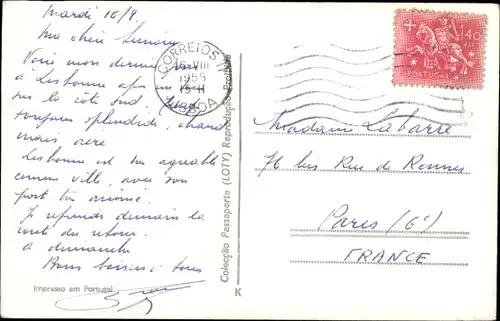 Mardi 16/8
Ma chère
Voici mon dernier
à Lisbonne après
sur la côte sud.
toujours splendide, chaud
mais aéré
Lisbonne est très agréable
comme ville, avec son
port très animé.
Je reprends demain la
route du retour.
A dimanche
Bons baisers à tous
Impresso em Portugal
Colecção Passaporte (LOTY) Reprodução Proibida
K
CORREIOS
16-VIII
1955
LISBOA
1$40
PORTUGAL
Madame Labarre
76 bis Rue de Rennes
Paris (6e)
FRANCE